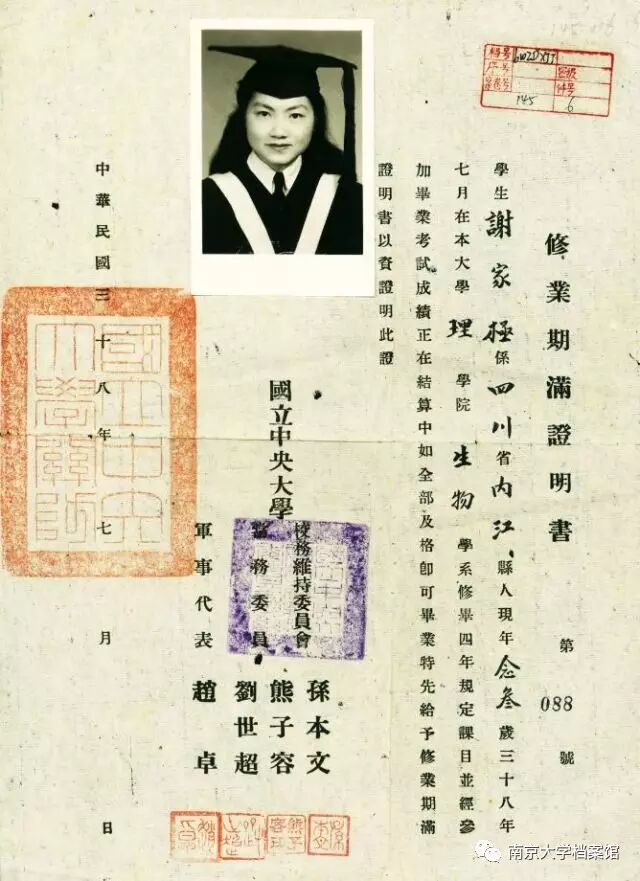 修業期滿證明書
第 088 號
學生謝家極係四川省內江縣人現年念叁歲三十八年
七月在本大學理學院生物學系修畢四年規定課目並經參
加畢業考試成績正在結算中如全部及格卽可畢業特先給予修業期滿
證明書以資證明此證
國立中央大學
校務維持委員會
常務委員
孫本文
熊子容
劉世超
軍事代表
趙卓
中華民國三十八年七月 日
國立中央
大學關防
孫本文
熊子容印
145
6
南京大学档案馆